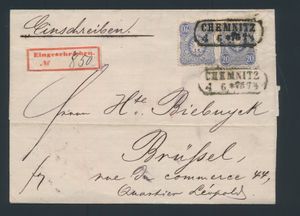 Einschreiben.
CHEMNITZ
4 6
Eingeschrieben.
№ 850
CHEMNITZ
4 6
20
20
Herrn Hte. Biebuyck
Brüssel,
rue du commerce 44,
Quartier Léopold.